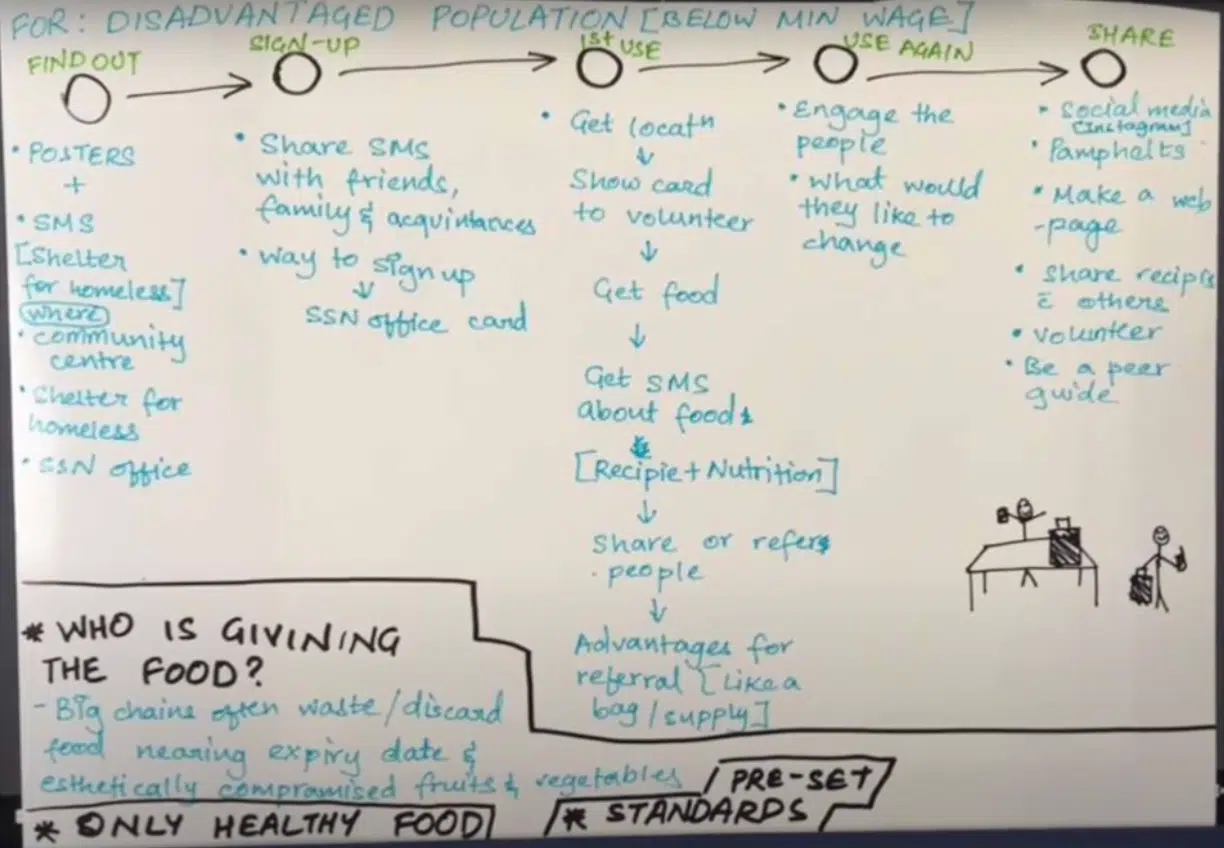 FOR: DISADVANTAGED POPULATION [BELOW MIN WAGE]
FIND OUT
• POSTERS
+
• SMS
[Shelter
for homeless]
where
• community
centre
• Shelter for
homeless
• SSN office
SIGN-UP
• Share SMS
with friends,
family & acquintances
• way to sign up
↓
SSN office card
1st USE
• Get locatn
↓
Show card
to volunteer
↓
Get food
↓
Get SMS
about foods
↓
[Recipie + Nutrition]
↓
Share or refers
people
↓
Advantages for
referral [Like a
bag/supply]
USE AGAIN
• Engage the
people
• what would
they like to
change
SHARE
• Social media
[Instagram]
• Pamphelts
• Make a web
-page
• Share recipis
c̄ others
• volunteer
• Be a peer
guide
* WHO IS GIVINING
THE FOOD?
- Big chains often waste/discard
food nearing expiry date &
esthetically compromised fruits & vegetables
* ONLY HEALTHY FOOD
* PRE-SET
STANDARDS